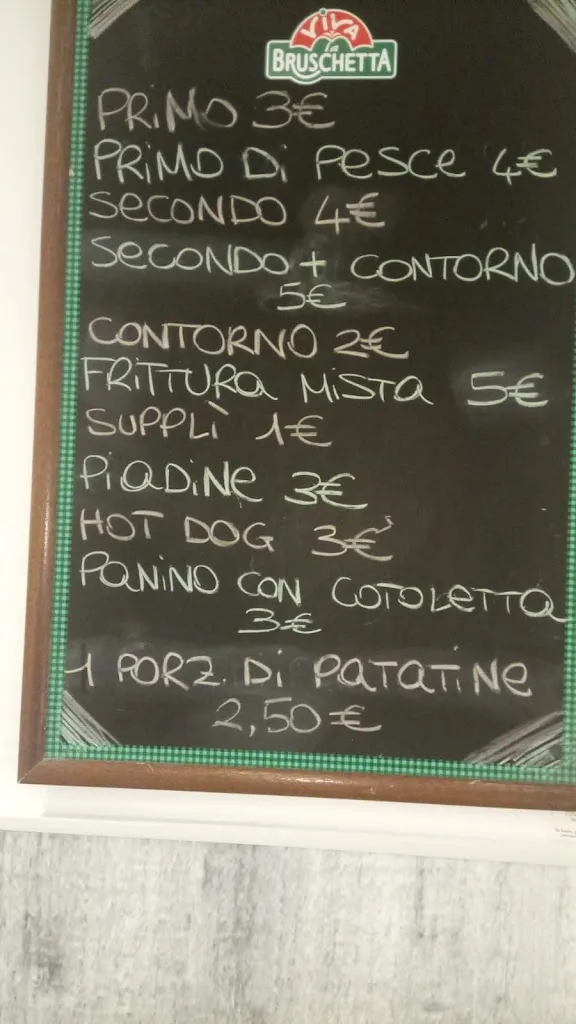 VIVA
la
BRUSCHETTA
PRIMO 3€
PRIMO DI PESCE 4€
SECONDO 4€
SECONDO + CONTORNO
5€
CONTORNO 2€
FRITTURA MISTA 5€
SUPPLÌ 1€
PIADINE 3€
HOT DOG 3€
PANINO CON COTOLETTA
3€
1 PORZ. DI PATATINE
2,50€